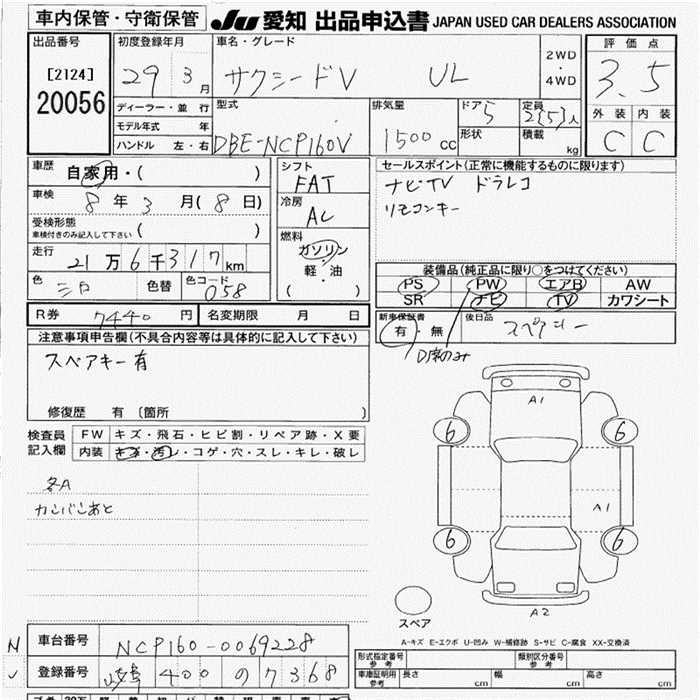 車内保管・守衛保管 JU 愛知 出品申込書 JAPAN USED CAR DEALERS ASSOCIATION
出品番号 初度登録年月 車名・グレード 2WD・4WD 評価点
[2124] 29 3月 サクシードV UL 3.5
20056 ディーラー・並行 型式 排気量 ドア 5 定員 2(5)人 外装 内装
モデル年式 年 形状 積載 kg
ハンドル 左・右 DBE-NCP160V 1500cc C C
車歴 自家用・( ) シフト FAT セールスポイント(正常に機能するものに限ります)
車検 8年3月(8日) 冷房 AC ナビTV ドラレコ
受検形態 リモコンキー
車検付きのみ記入して下さい ( ) 燃料
走行 21万6千317km ガソリン
軽・油
( )
装備品(純正品に限り○をつけてください)
色 シロ 色替 色コード 058 PS PW エアB AW
SR ナビ TV カワシート
R券 7440円 名変期限 月 日 新車保証書 有・無 後日品 スペアキー
D席のみ
注意事項申告欄(不具合内容等は具体的に記入して下さい)
スペアキー有
修復歴 有 〔箇所 〕
検査員 FW キズ・飛石・ヒビ割・リペア跡・X要
記入欄 内装 キズ・汚レ・コゲ・穴・スレ・キレ・破レ
各A
カンバンあと
A1
6 6
A1
6 6
スペア
A2
A-キズ E-エクボ U-凹み W-補修跡 S-サビ C-腐食 XX-交換済
N 車台番号 NCP160-0069228
登録番号 400 の 7368
型式指定番号 参考 類別区分番号 参考
車庫証明用 参考 長さ cm 幅 cm 高さ cm